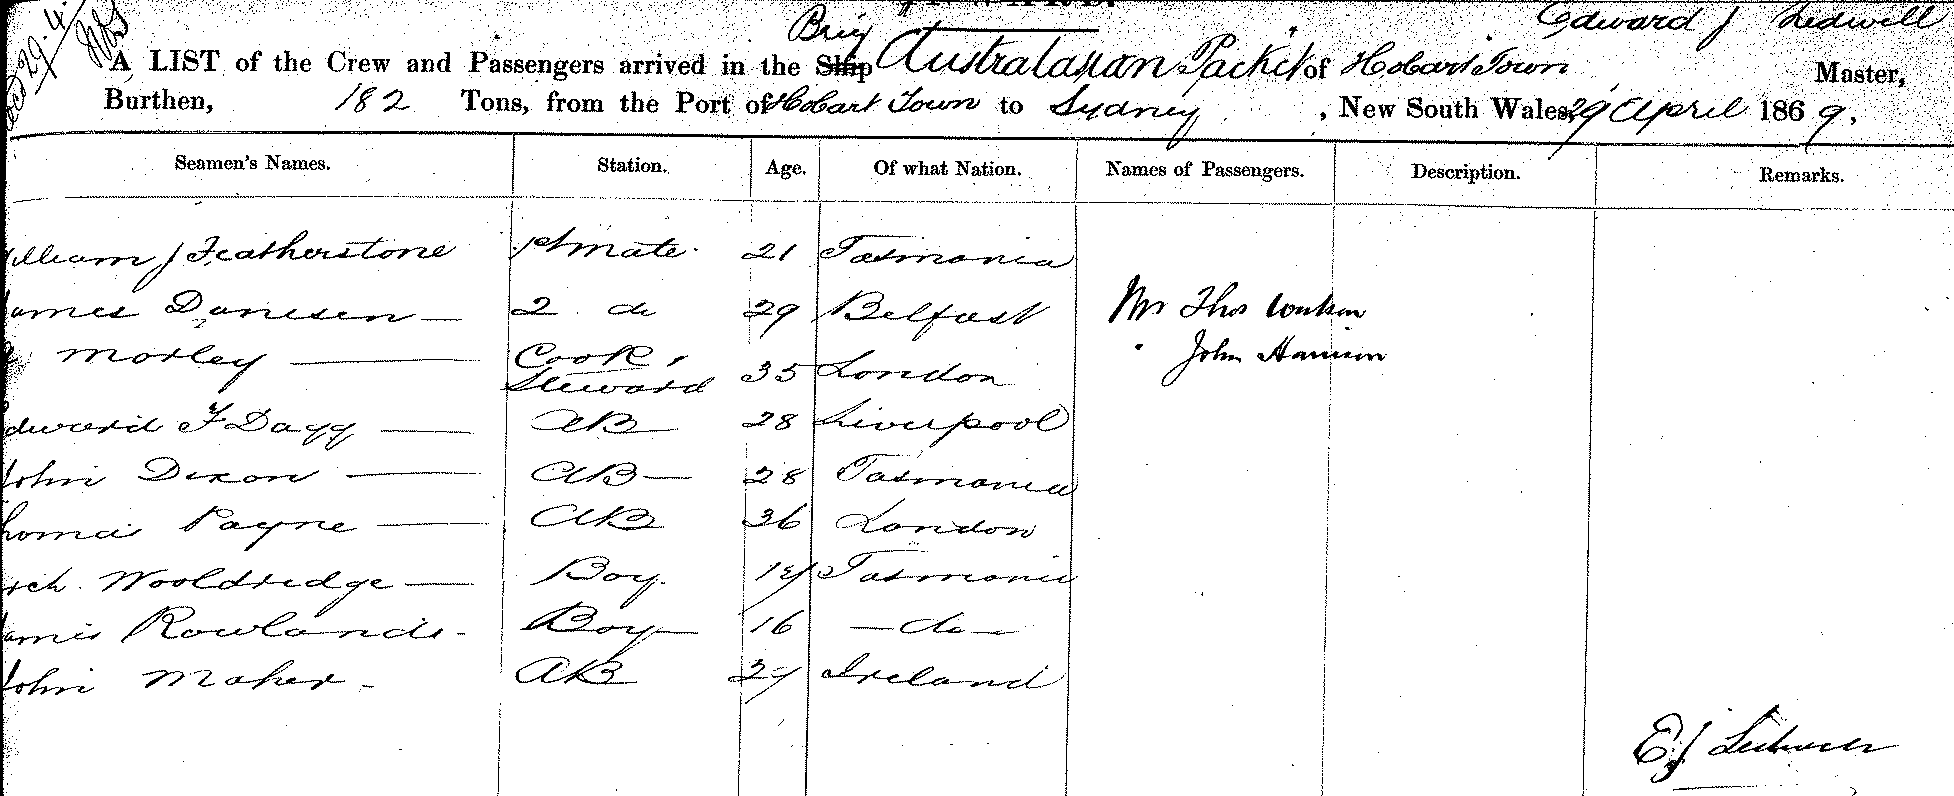 Edward J Ledwill
Brig
A LIST of the Crew and Passengers arrived in the Ship Australasian Packet of Hobart Town Master,
Burthen, 182 Tons, from the Port of Hobart Town to Sydney, New South Wales, 29 April 1869.
Seamen's Names. Station. Age. Of what Nation. Names of Passengers. Description. Remarks.
illiam J Featherstone 1st mate 21 Tasmania
ames Danesen — 2 do 29 Belfast Mr Thos
Morley — Cook, John Harrison
Steward 35 London
dward F Dagg — AB 28 Liverpool
John Dixon — AB — 28 Tasmania
homas Payne — AB 36 London
rch. Wooldredge — Boy Tasmania
ames Rowlands - Boy 16 — do —
John Maher - AB 27 Ireland
E J